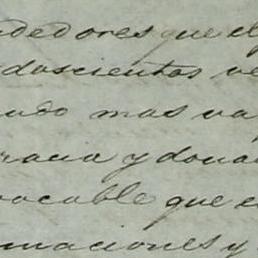 dedores que el
doscientos ve
ado mas va
racia y dona
ocable que e
maciones y